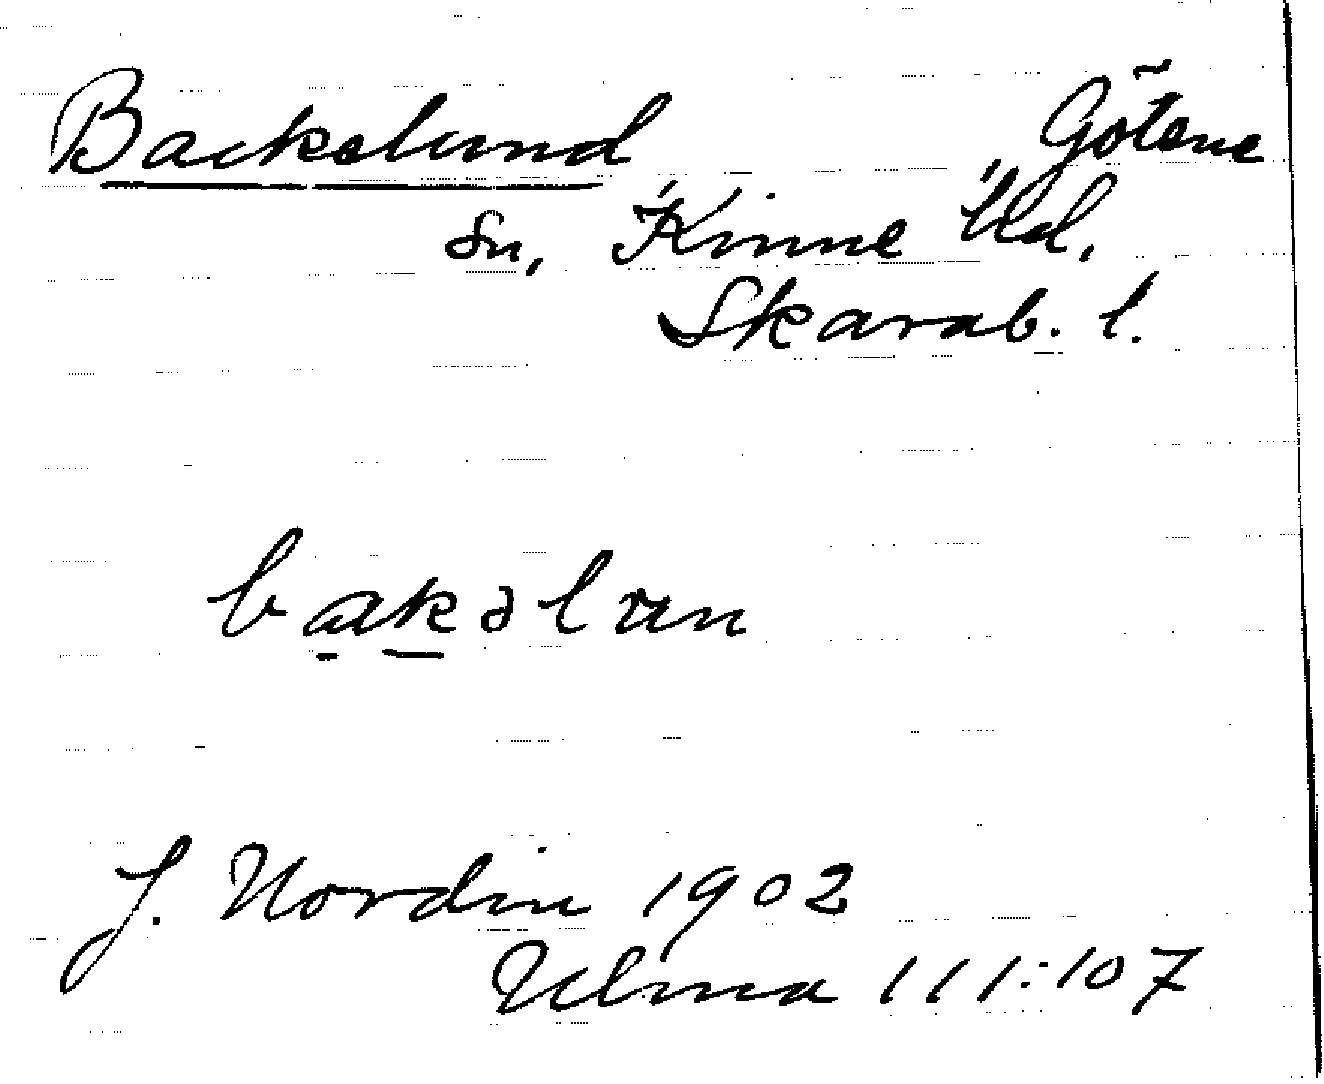 Backelund Götene
sn, Kinne Hd,
Skarab. l.
bakəlun
J. Nordin 1902
Ulma 111:107